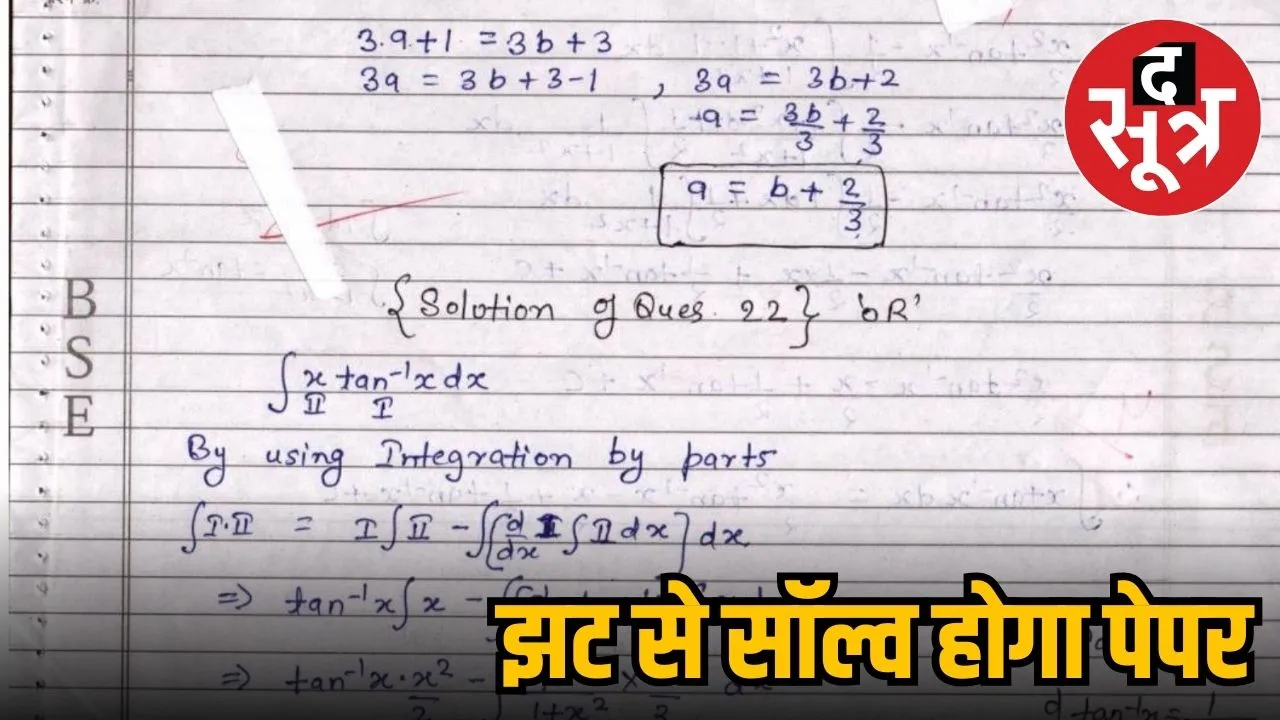 3.a+1 = 3b+3
3a = 3b+3-1 , 3a = 3b+2
a = 3b/3 + 2/3
a = b + 2/3
द सूत्र
{Solution of Ques. 22} 'OR'
∫ x tan⁻¹x dx
II I
B
S
E
By using Integration by parts
∫I.II = I∫II - ∫[d/dx I ∫II dx] dx
⇒ tan⁻¹x ∫x - ∫
⇒ tan⁻¹x . x²/2 - ∫ 1/1+x² ×
झट से सॉल्व होगा पेपर